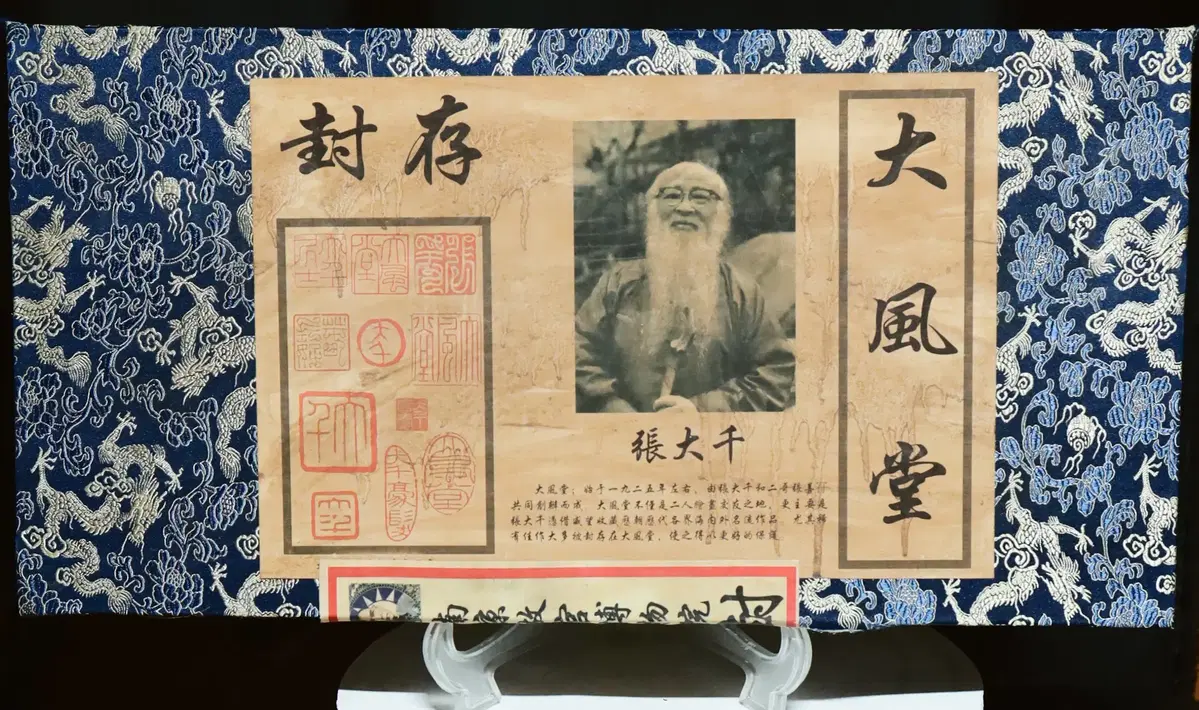 封存
大風堂
張大千
大風堂：始于一九二五年左右、由張大千和二哥張善
共同創辦而成　大風堂不僅是二人繪畫交友之地、更主要是
張大千憑借威望收藏歷朝歷代各界海内外名流作品　尤其稀
有佳作大多被封存在大風堂、使之得以更好的保護
故宮博物院封
大千